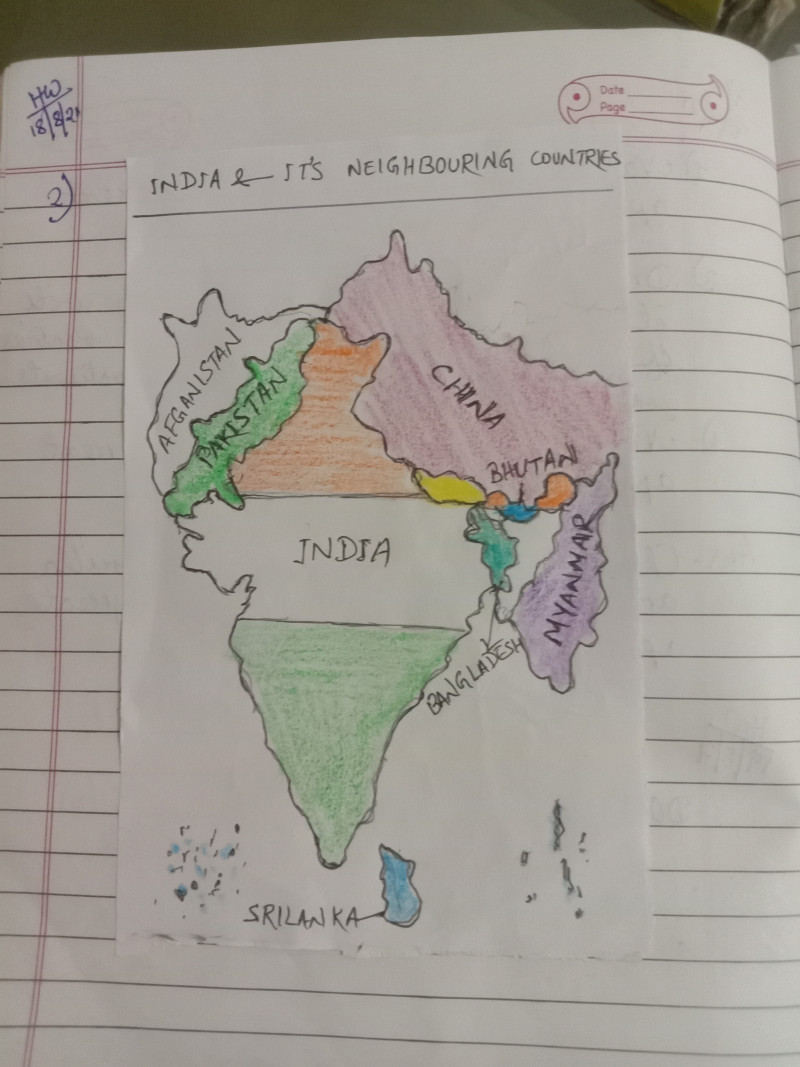 HW
18/8/21
Date
Page
2)
INDIA & IT'S NEIGHBOURING COUNTRIES
AFGANISTAN
PAKISTAN
CHINA
BHUTAN
INDIA
MYANMAR
BANGLADESH
SRILANKA